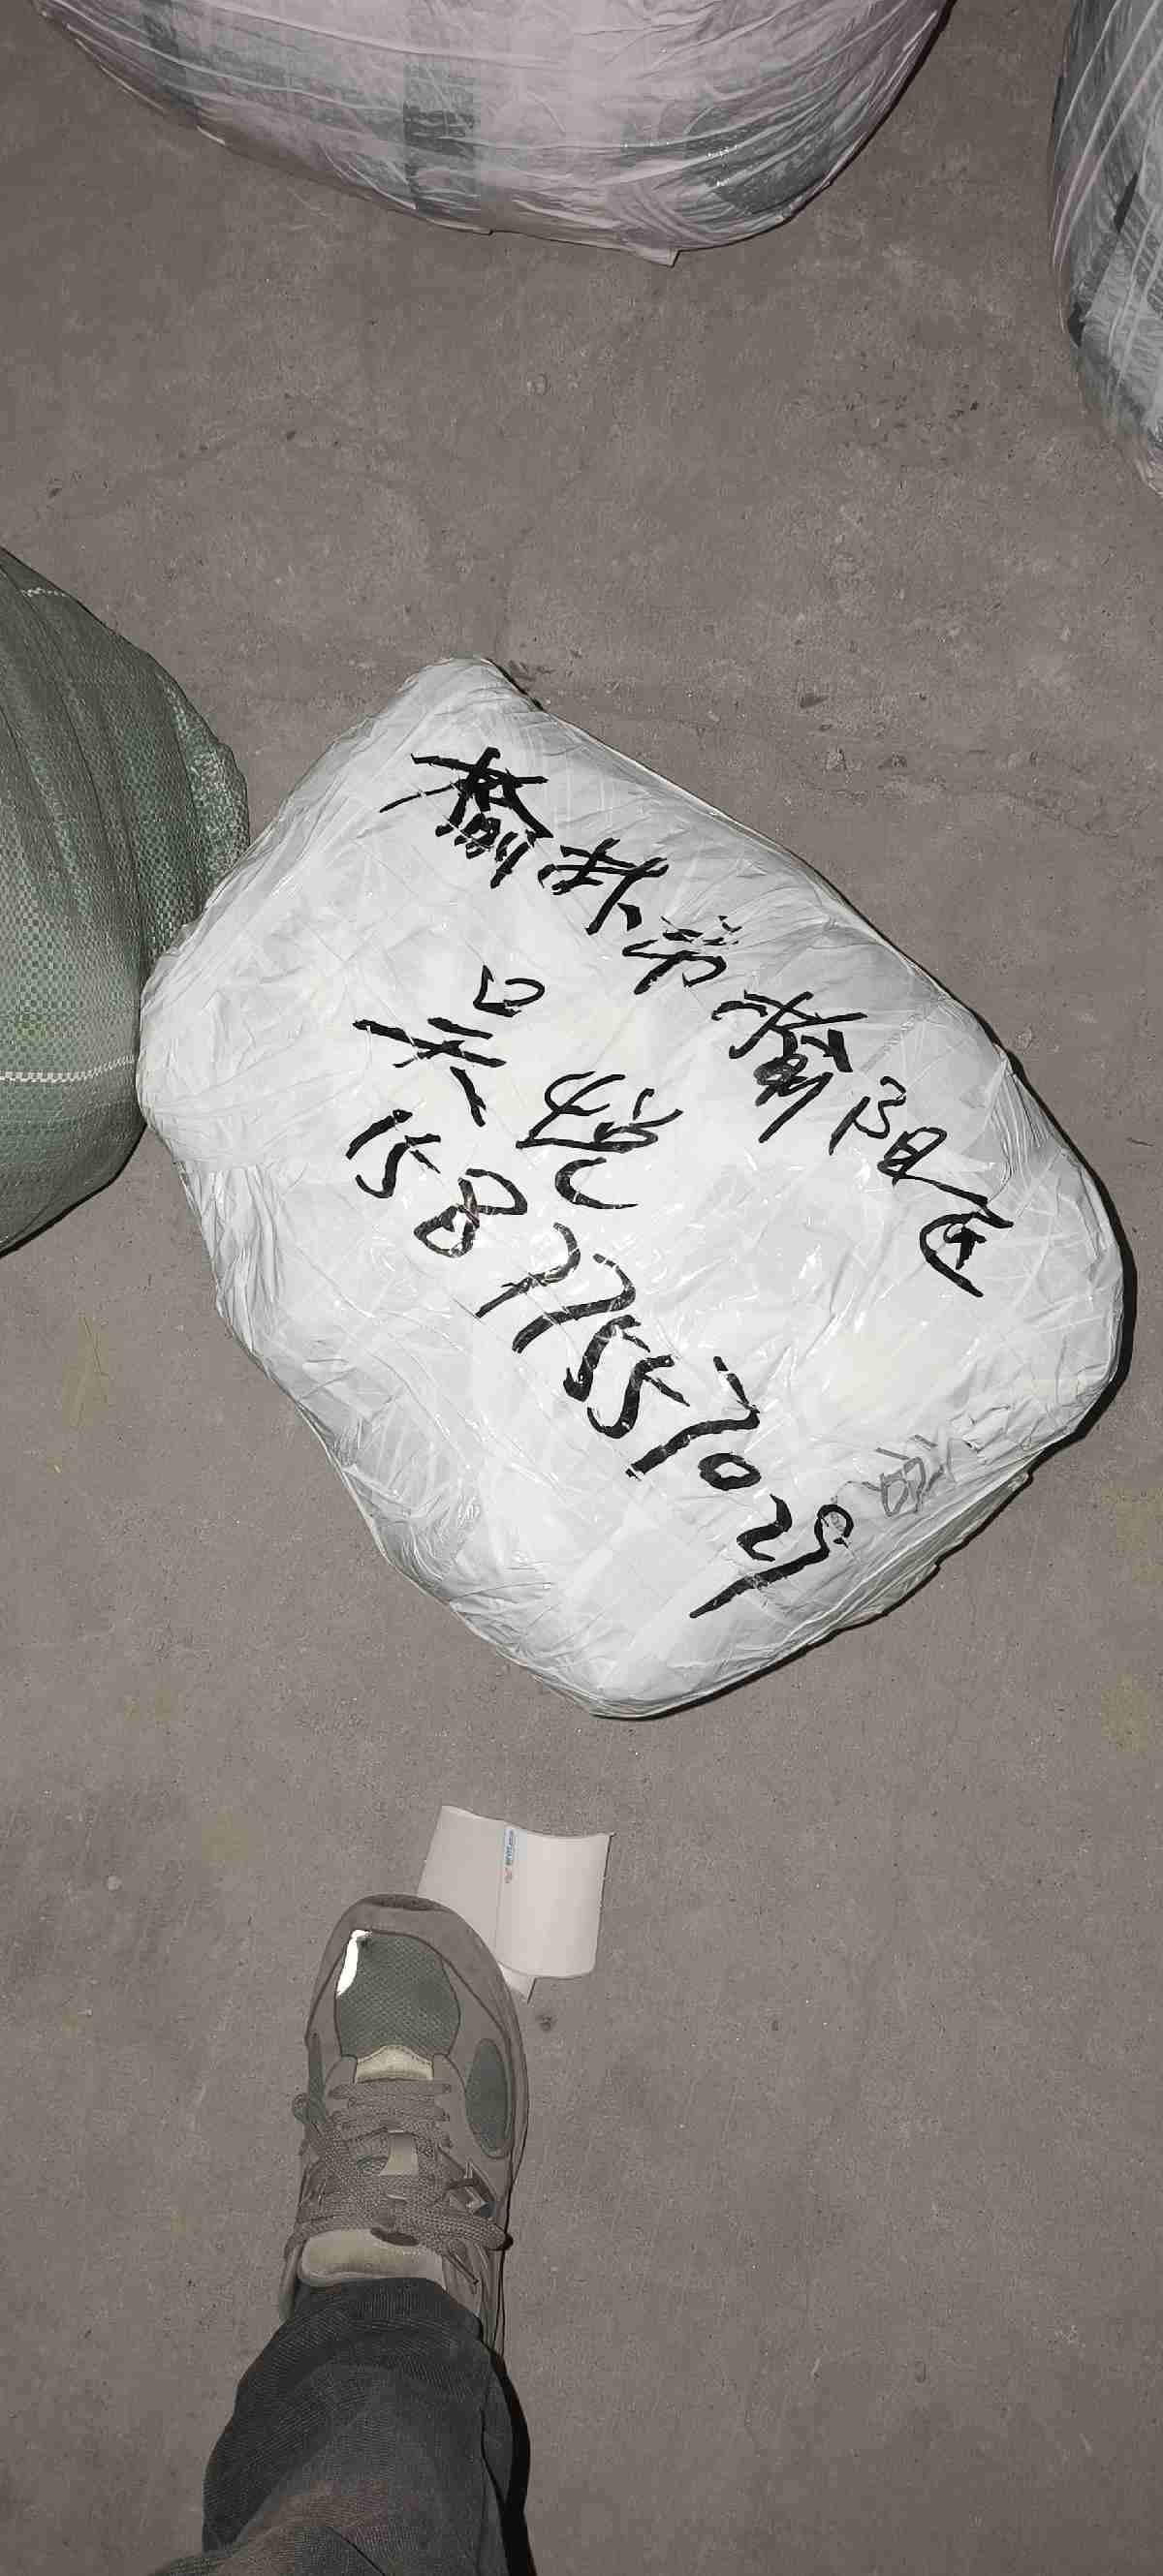 榆林市榆阳区
吴悦
15877557029